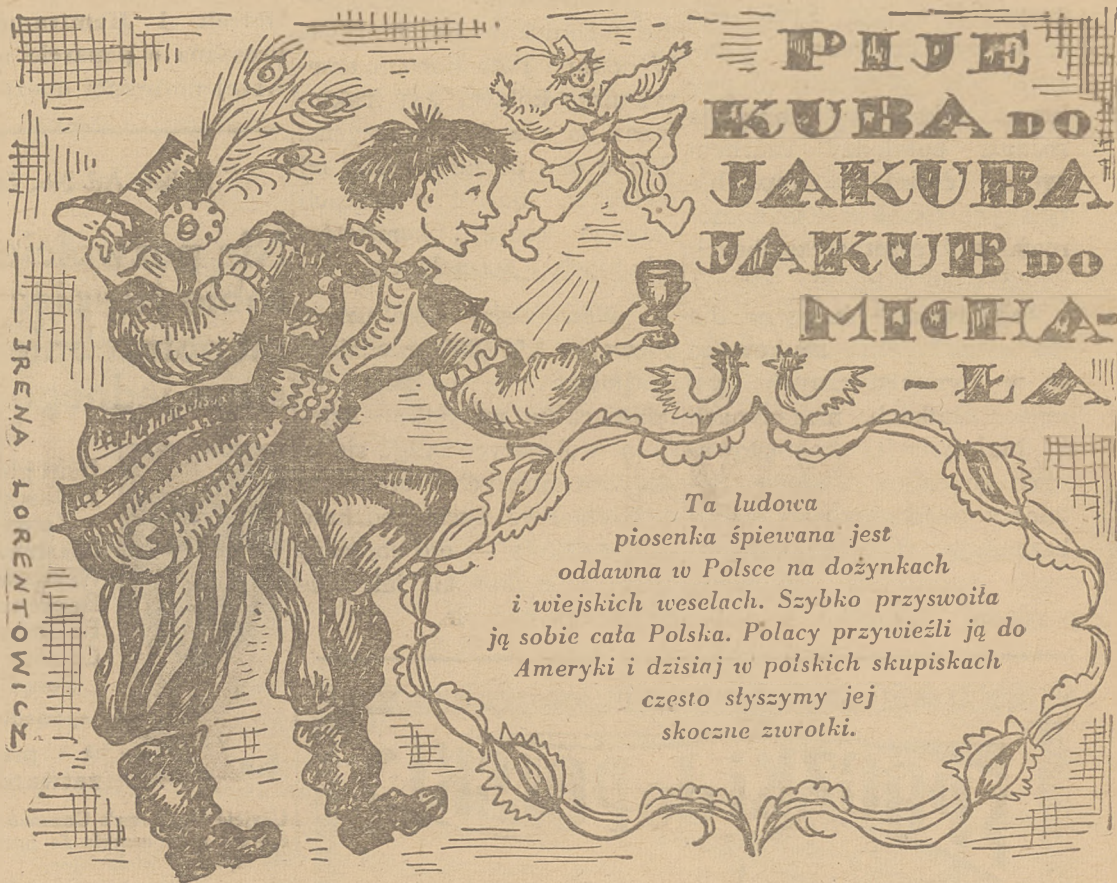 PIJE
KUBA DO
JAKUBA
JAKUB DO
MICHA-
-ŁA
Ta ludowa
piosenka śpiewana jest
oddawna w Polsce na dożynkach
i wiejskich weselach. Szybko przyswoiła
ją sobie cała Polska. Polacy przywieźli ją do
Ameryki i dzisiaj w polskich skupiskach
często słyszymy jej
skoczne zwrotki.
IRENA LORENTOWICZ